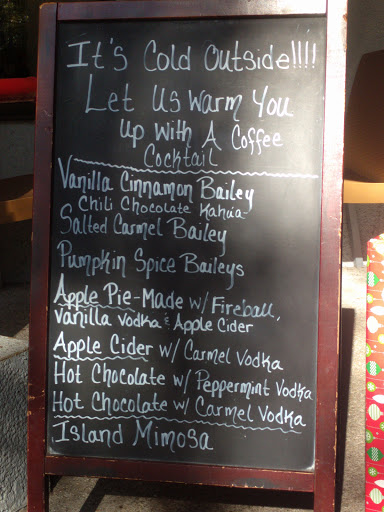 It's Cold Outside!!!!
Let Us Warm You
Up With A Coffee
Cocktail
Vanilla Cinnamon Bailey
Chili Chocolate Kahlua-
Salted Carmel Bailey
Pumpkin Spice Baileys
Apple Pie-Made w/ Fireball,
Vanilla Vodka & Apple Cider
Apple Cider w/ Carmel Vodka
Hot Chocolate w/ Peppermint Vodka
Hot Chocolate w/ Carmel Vodka
Island Mimosa